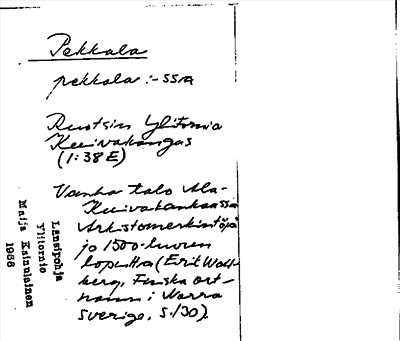 Pekkala
pekkala : -ssa
Ruotsin Ylitornio
Kuivakangas
(1:38 E)
Vanha talo Ala-
Kuivakankaassa
Arkistomerkintöjä
jo 1500-luvun
lopulta (Erik Wahl-
berg, Finska ort-
namn i Norra
Sverige, s. 130).
Länsipohja
Ylitornio
Maija Kainulainen
1966